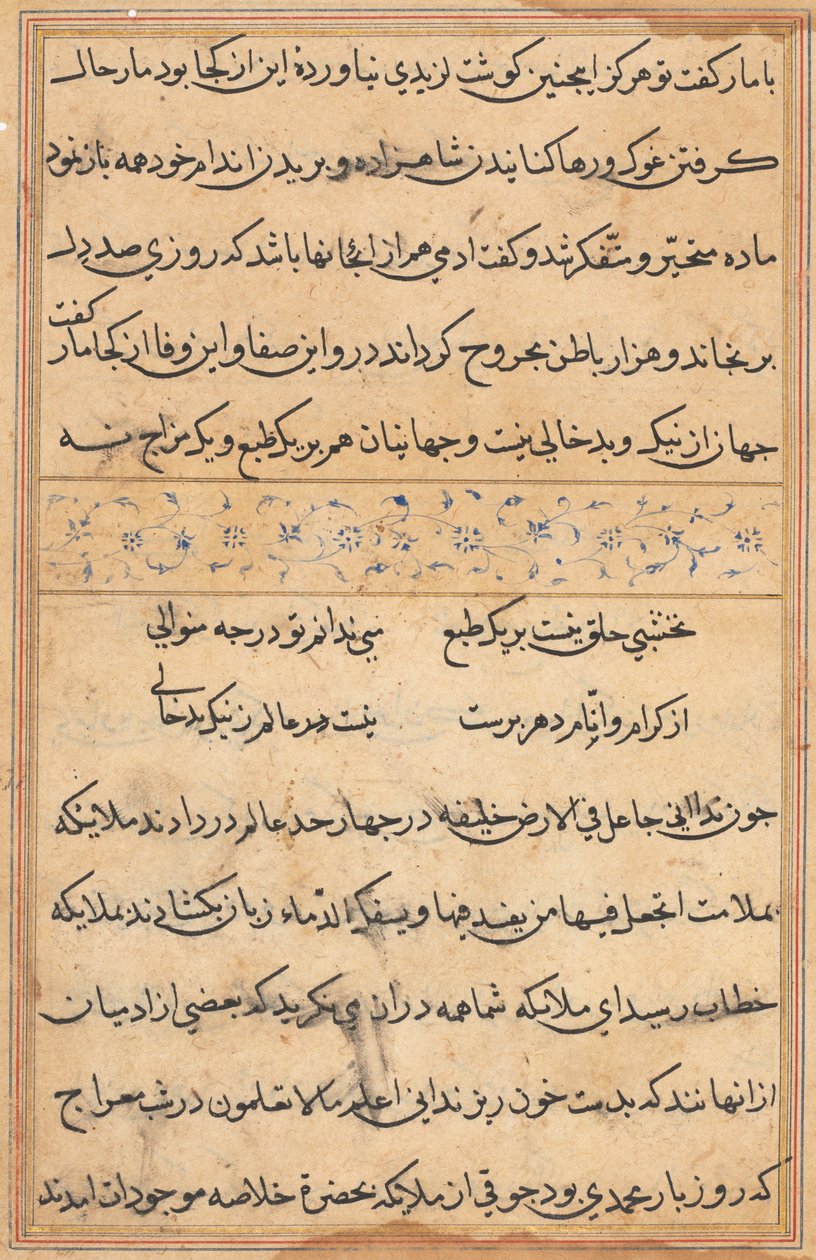 با مار کفت تو هرکز ایجنین کوشت لزیدي نیاوردهٔ این از کجا بود مار حال
کرفتن غوک و رها کنانیدن شاهزاده و بریدن اندام خود همه باز نمود
ماده متحیّر و متّفکر شد و کفت ادمي هم از انجانها باشد که روزي صد دل
برنجاند و هزار باطن مجروح کرداند در و این صفا و این وفا از کجا مار کفت
جهان از نیک و بد خالي نیست و جهانیان هم بر یک طبع و یک مزاج نه
نخشبي خلق نیست بر یک طبع می ندانم تو در جه منوالي
از کرام و لئام دهر برست نیست در عالم ز نیک بد خالی
جون ندا اني جاعل في الارض خلیفه در جهار حد عالم در دادند ملایکه
بملامت اتجعل فیها من یفسد فیها و یسفک الدّماء زبان بکشادند بملایکه
خطاب رسید اي ملایکه شما همه دران می نکرید که بعضي از ادمیان
از انها نند که بدست خون ریزند اني اعلم مالا تعلمون در شب معراج
که روز بار محمدي بود جوقي از ملایکه بحضرة خلاصه موجودات امدند